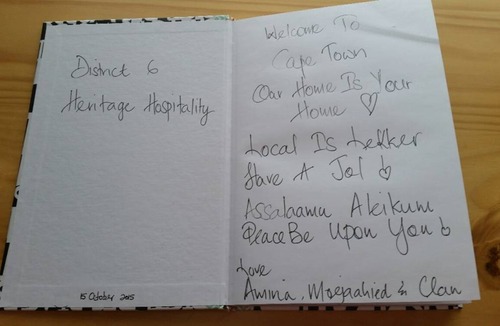 District 6
Heritage Hospitality
15 October 2015
Welcome To
Cape Town
Our Home Is Your
Home
Local Is Lekker
Have A Jol
Assalaamu Aleikum
Peace Be Upon You
Love
Amina, Moegahied & Clan